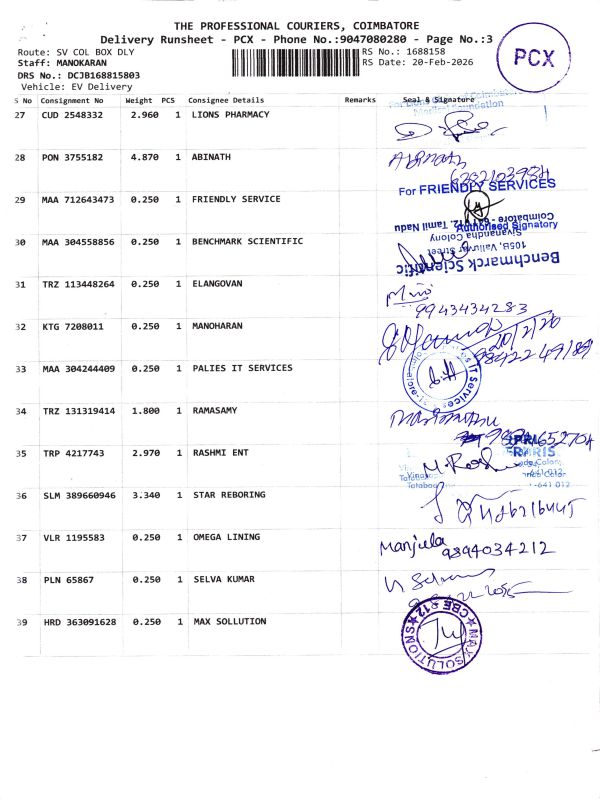 THE PROFESSIONAL COURIERS, COIMBATORE
Delivery Runsheet - PCX - Phone No.:9047080280 - Page No.:3
Route: SV COL BOX DLY
RS No.: 1688158
Staff: MANOKARAN
RS Date: 20-Feb-2026
DRS No.: DCJB168815803
Vehicle: EV Delivery
PCX
S No Consignment No Weight PCS Consignee Details Remarks Seal & Signature
27 CUD 2548332 2.960 1 LIONS PHARMACY
28 PON 3755182 4.870 1 ABINATH
Abinath
29 MAA 712643473 0.250 1 FRIENDLY SERVICE
For FRIENDLY SERVICES
Authorised Signatory
30 MAA 304558856 0.250 1 BENCHMARK SCIENTIFIC
Benchmarck Scientific
105B, Valluvar Street
Sivanandha Colony
Coimbatore - 641 012. Tamil Nadu
31 TRZ 113448264 0.250 1 ELANGOVAN
9943434283
32 KTG 7208011 0.250 1 MANOHARAN
20/2/26
33 MAA 304244409 0.250 1 PALIES IT SERVICES
34 TRZ 131319414 1.800 1 RAMASAMY
35 TRP 4217743 2.970 1 RASHMI ENT
36 SLM 389660946 3.340 1 STAR REBORING
37 VLR 1195583 0.250 1 OMEGA LINING
Manjula 9894034212
38 PLN 65867 0.250 1 SELVA KUMAR
39 HRD 363091628 0.250 1 MAX SOLLUTION
MAX SOLUTIONS CBE 12